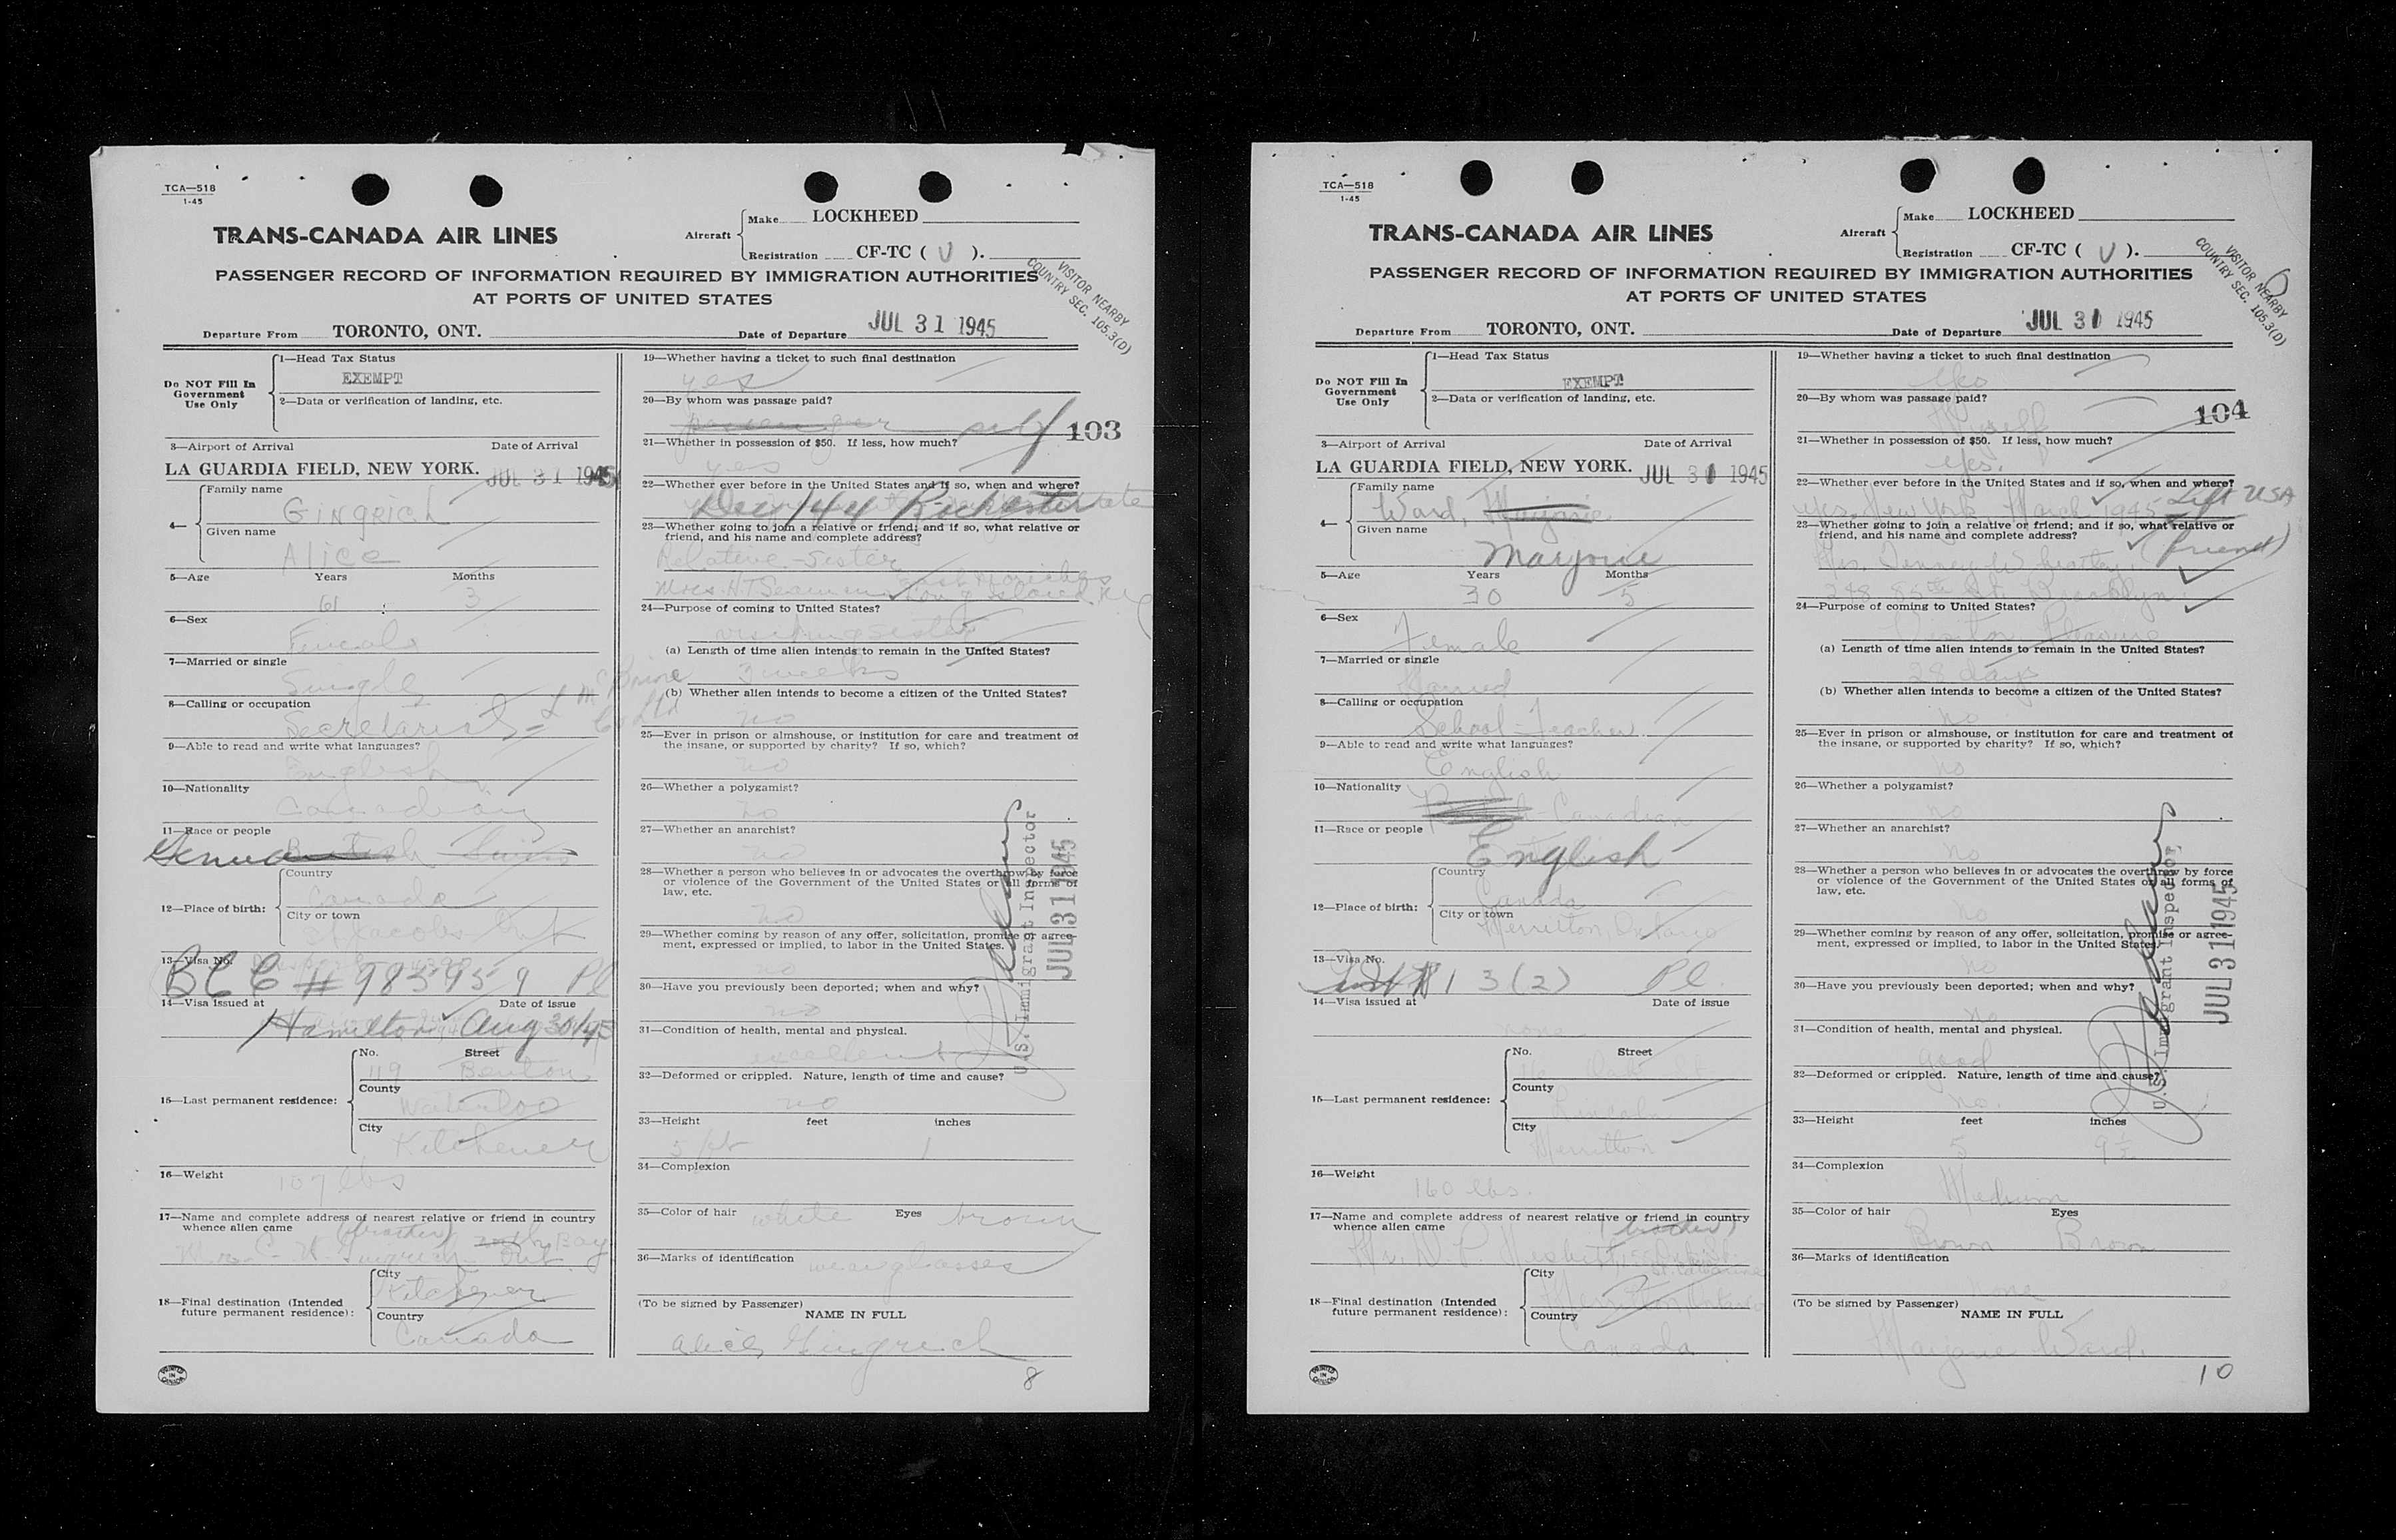 TCA—518
1-45
TRANS-CANADA AIR LINES
Aircraft
Make LOCKHEED
Registration CF-TC ( V ).
PASSENGER RECORD OF INFORMATION REQUIRED BY IMMIGRATION AUTHORITIES
AT PORTS OF UNITED STATES
VISITOR NEARBY
COUNTRY SEC. 105.3(D)
Departure From TORONTO, ONT.
Date of Departure JUL 31 1945
Do NOT Fill In
Government
Use Only
1—Head Tax Status
EXEMPT
2—Data or verification of landing, etc.
3—Airport of Arrival Date of Arrival
LA GUARDIA FIELD, NEW YORK. JUL 31 1945
4—
Family name
Gingrich
Given name
Alice
5—Age Years Months
61 3
6—Sex
Female
7—Married or single
Single
8—Calling or occupation
Secretarial
9—Able to read and write what languages?
English
10—Nationality
Canadian
11—Race or people
German British Swiss
12—Place of birth:
Country
Canada
City or town
St Jacobs Ont
13—Visa No.
BCC # 985959 Pl
14—Visa issued at Date of issue
Hamilton Aug 30/45
15—Last permanent residence:
No. Street
119 Benton
County
Waterloo
City
Kitchener
16—Weight
107 lbs
17—Name and complete address of nearest relative or friend in country
whence alien came
(brother)
Gingrich Ont
18—Final destination (Intended
future permanent residence):
City
Kitchener
Country
Canada
19—Whether having a ticket to such final destination
yes
20—By whom was passage paid?
passenger self
103
21—Whether in possession of $50. If less, how much?
yes
22—Whether ever before in the United States and if so, when and where?
Dec/44 Rochester
23—Whether going to join a relative or friend; and if so, what relative or
friend, and his name and complete address?
Relative—Sister
Mrs. H.T. Long Island N.Y.
24—Purpose of coming to United States?
visiting sister
(a) Length of time alien intends to remain in the United States?
3 weeks
(b) Whether alien intends to become a citizen of the United States?
no
25—Ever in prison or almshouse, or institution for care and treatment of
the insane, or supported by charity? If so, which?
no
26—Whether a polygamist?
no
27—Whether an anarchist?
no
28—Whether a person who believes in or advocates the overthrow by force
or violence of the Government of the United States or all forms of
law, etc.
no
29—Whether coming by reason of any offer, solicitation, promise or agree-
ment, expressed or implied, to labor in the United States.
no
30—Have you previously been deported; when and why?
no
31—Condition of health, mental and physical.
excellent
32—Deformed or crippled. Nature, length of time and cause?
no
33—Height feet inches
5 ft 1
34—Complexion
35—Color of hair white Eyes brown
36—Marks of identification wear glasses
(To be signed by Passenger)
NAME IN FULL
Alice Gingrich
8
U.S. Immigrant Inspector
JUL 31 1945
PRINTED IN CANADA
TCA—518
1-45
TRANS-CANADA AIR LINES
Aircraft
Make LOCKHEED
Registration CF-TC ( V ).
PASSENGER RECORD OF INFORMATION REQUIRED BY IMMIGRATION AUTHORITIES
AT PORTS OF UNITED STATES
VISITOR NEARBY
COUNTRY SEC. 105.3(D)
Departure From TORONTO, ONT.
Date of Departure JUL 31 1945
Do NOT Fill In
Government
Use Only
1—Head Tax Status
EXEMPT
2—Data or verification of landing, etc.
3—Airport of Arrival Date of Arrival
LA GUARDIA FIELD, NEW YORK. JUL 31 1945
4—
Family name
Ward, Marjorie
Given name
Marjorie
5—Age Years Months
30 5
6—Sex
Female
7—Married or single
Married
8—Calling or occupation
School-Teacher
9—Able to read and write what languages?
English
10—Nationality
Canadian
11—Race or people
English
12—Place of birth:
Country
Canada
City or town
Merritton, Ontario
13—Visa No.
13(2) Pl.
14—Visa issued at Date of issue
none
15—Last permanent residence:
No. Street
County
Lincoln
City
Merritton
16—Weight
160 lbs.
17—Name and complete address of nearest relative or friend in country
whence alien came
(brother)
18—Final destination (Intended
future permanent residence):
City
Merritton, Ontario
Country
Canada
19—Whether having a ticket to such final destination
yes
20—By whom was passage paid?
Myself
104
21—Whether in possession of $50. If less, how much?
yes.
22—Whether ever before in the United States and if so, when and where?
Yes, New York March 1945 Left USA
23—Whether going to join a relative or friend; and if so, what relative or
friend, and his name and complete address?
(friend)
85th St. Brooklyn
24—Purpose of coming to United States?
Visitor Pleasure
(a) Length of time alien intends to remain in the United States?
28 days
(b) Whether alien intends to become a citizen of the United States?
No
25—Ever in prison or almshouse, or institution for care and treatment of
the insane, or supported by charity? If so, which?
No
26—Whether a polygamist?
no
27—Whether an anarchist?
No
28—Whether a person who believes in or advocates the overthrow by force
or violence of the Government of the United States or all forms of
law, etc.
No
29—Whether coming by reason of any offer, solicitation, promise or agree-
ment, expressed or implied, to labor in the United States.
No
30—Have you previously been deported; when and why?
No
31—Condition of health, mental and physical.
good
32—Deformed or crippled. Nature, length of time and cause?
no.
33—Height feet inches
5 9½
34—Complexion
Medium
35—Color of hair Eyes
Brown Brown
36—Marks of identification
none
(To be signed by Passenger)
NAME IN FULL
Marjorie Ward.
10
U.S. Immigrant Inspector
JUL 31 1945
PRINTED IN CANADA